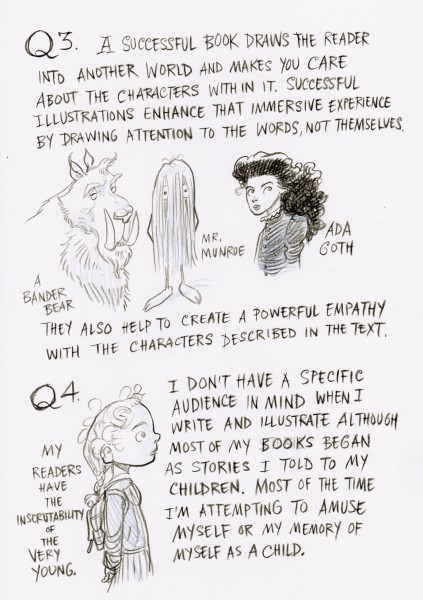 Q3. A SUCCESSFUL BOOK DRAWS THE READER
INTO ANOTHER WORLD AND MAKES YOU CARE
ABOUT THE CHARACTERS WITHIN IT. SUCCESSFUL
ILLUSTRATIONS ENHANCE THAT IMMERSIVE EXPERIENCE
BY DRAWING ATTENTION TO THE WORDS, NOT THEMSELVES.
A
BANDER
BEAR
MR.
MUNROE
ADA
GOTH
THEY ALSO HELP TO CREATE A POWERFUL EMPATHY
WITH THE CHARACTERS DESCRIBED IN THE TEXT.
Q4.
I DON'T HAVE A SPECIFIC
AUDIENCE IN MIND WHEN I
WRITE AND ILLUSTRATE ALTHOUGH
MOST OF MY BOOKS BEGAN
AS STORIES I TOLD TO MY
CHILDREN. MOST OF THE TIME
I'M ATTEMPTING TO AMUSE
MYSELF OR MY MEMORY OF
MYSELF AS A CHILD.
MY
READERS
HAVE
THE
INSCRUTABILITY
OF
THE
VERY
YOUNG.